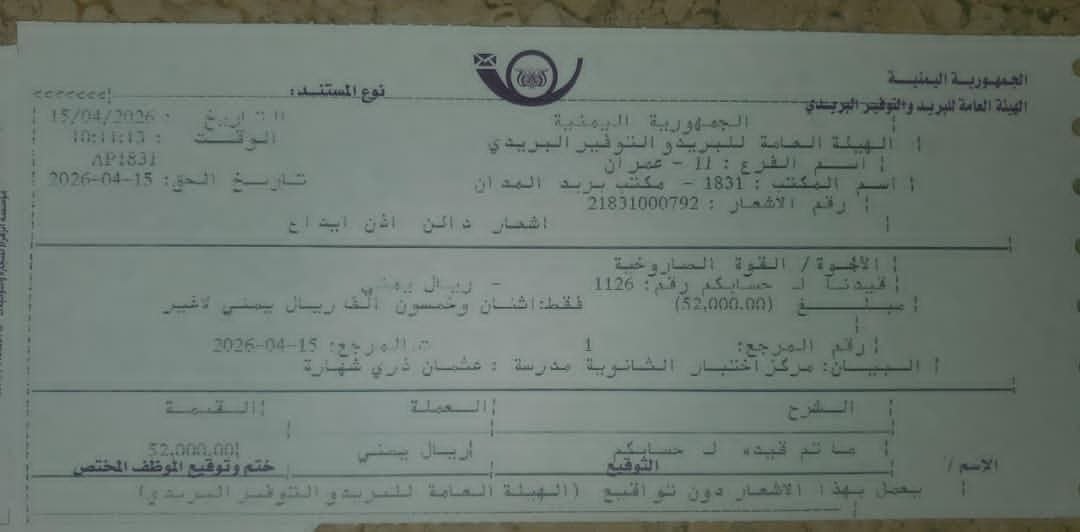 الجمهورية اليمنية
الهيئة العامة للبريد والتوفير البريدي
نوع المستند:
<<<<<<<
الجمهورية اليمنية
التاريخ : 15/04/2026
الهيئة العامة للبريد و التوفير البريدي
الوقت : 10:11:13
اسم الفرع : 11 - عمران
AP1831
اسم المكتب : 1831 - مكتب بريد المدان
تاريخ الحق: 15-04-2026
رقم الاشعار : 21831000792
اشعار دائن اذن ايداع
الأخوة / القوة الصاروخية
قيدنا لـ حسابكم رقم: 1126 - ريال يمني
مبلغ (52,000.00) فقط: اثنان وخمسون الف ريال يمني لاغير
رقم المرجع: 1 ت.المرجع: 15-04-2026
البيان: مركز اختبار الثانوية مدرسة : عثمان ذري شهارة
الشرح العملة القيمة
ما تم قيده لـ حسابكم ريال يمني 52,000.00
الاسم / التوقيع ختم وتوقيع الموظف المختص
يعمل بهذا الاشعار دون تواقيع (الهيئة العامة للبريد و التوفير البريدي)